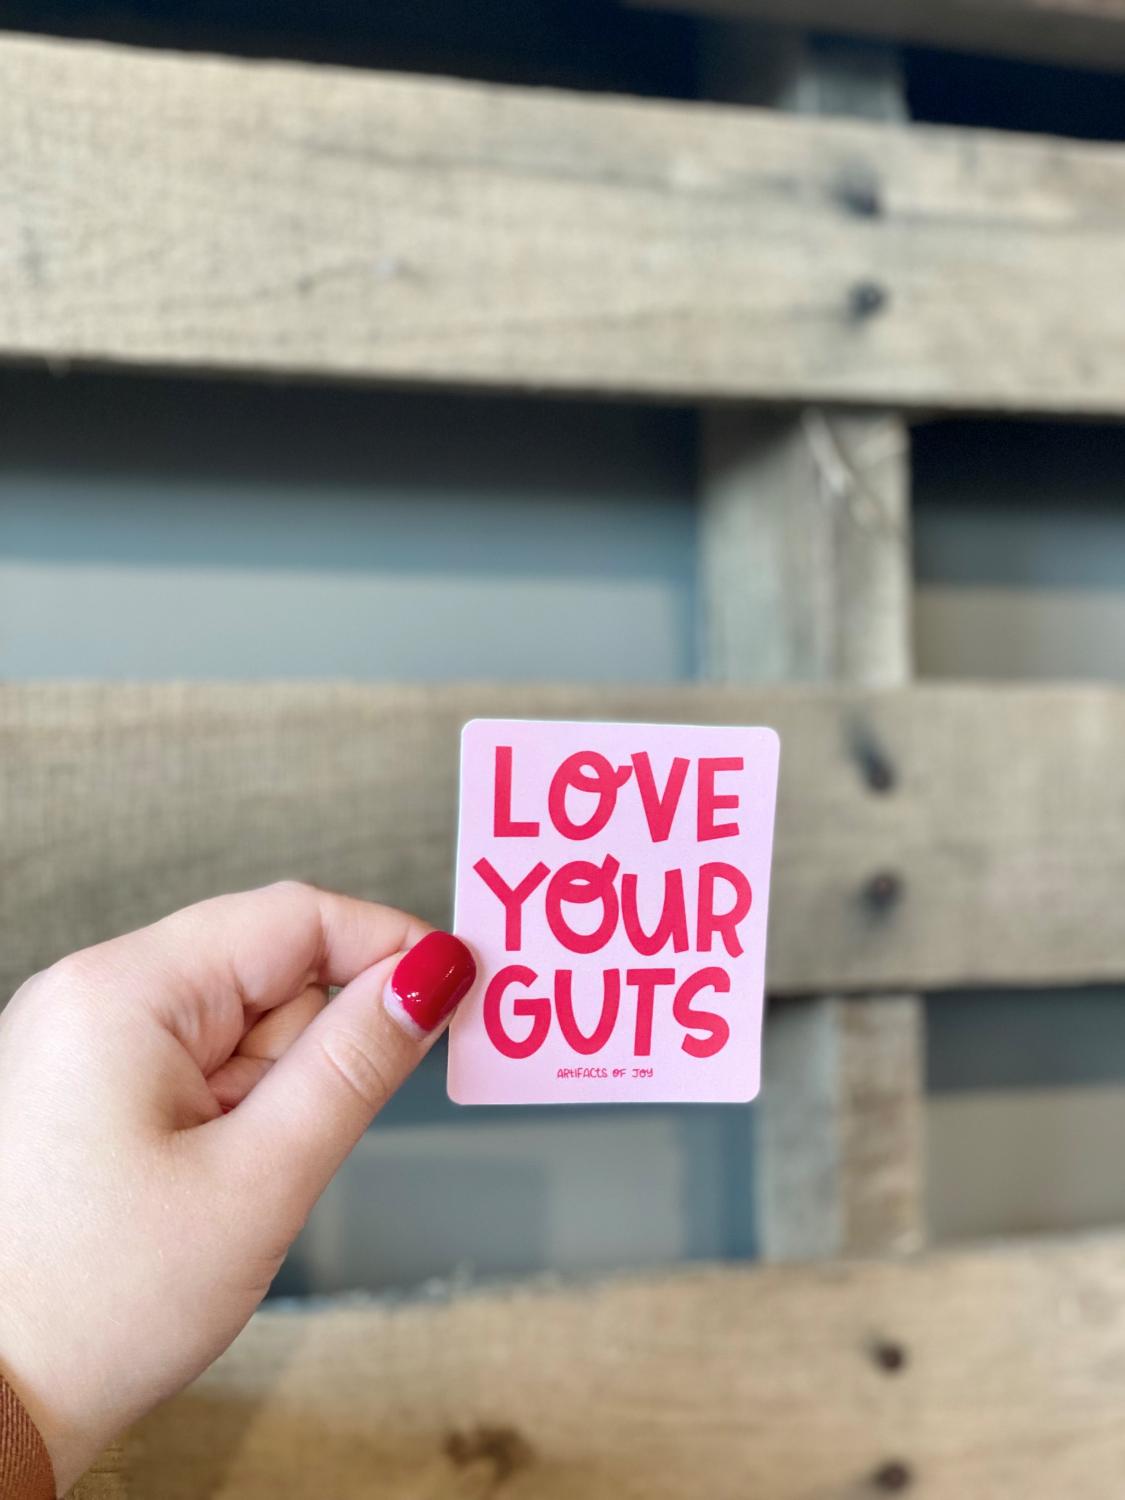 LOVE
YOUR
GUTS
ARTIFACTS OF JOY